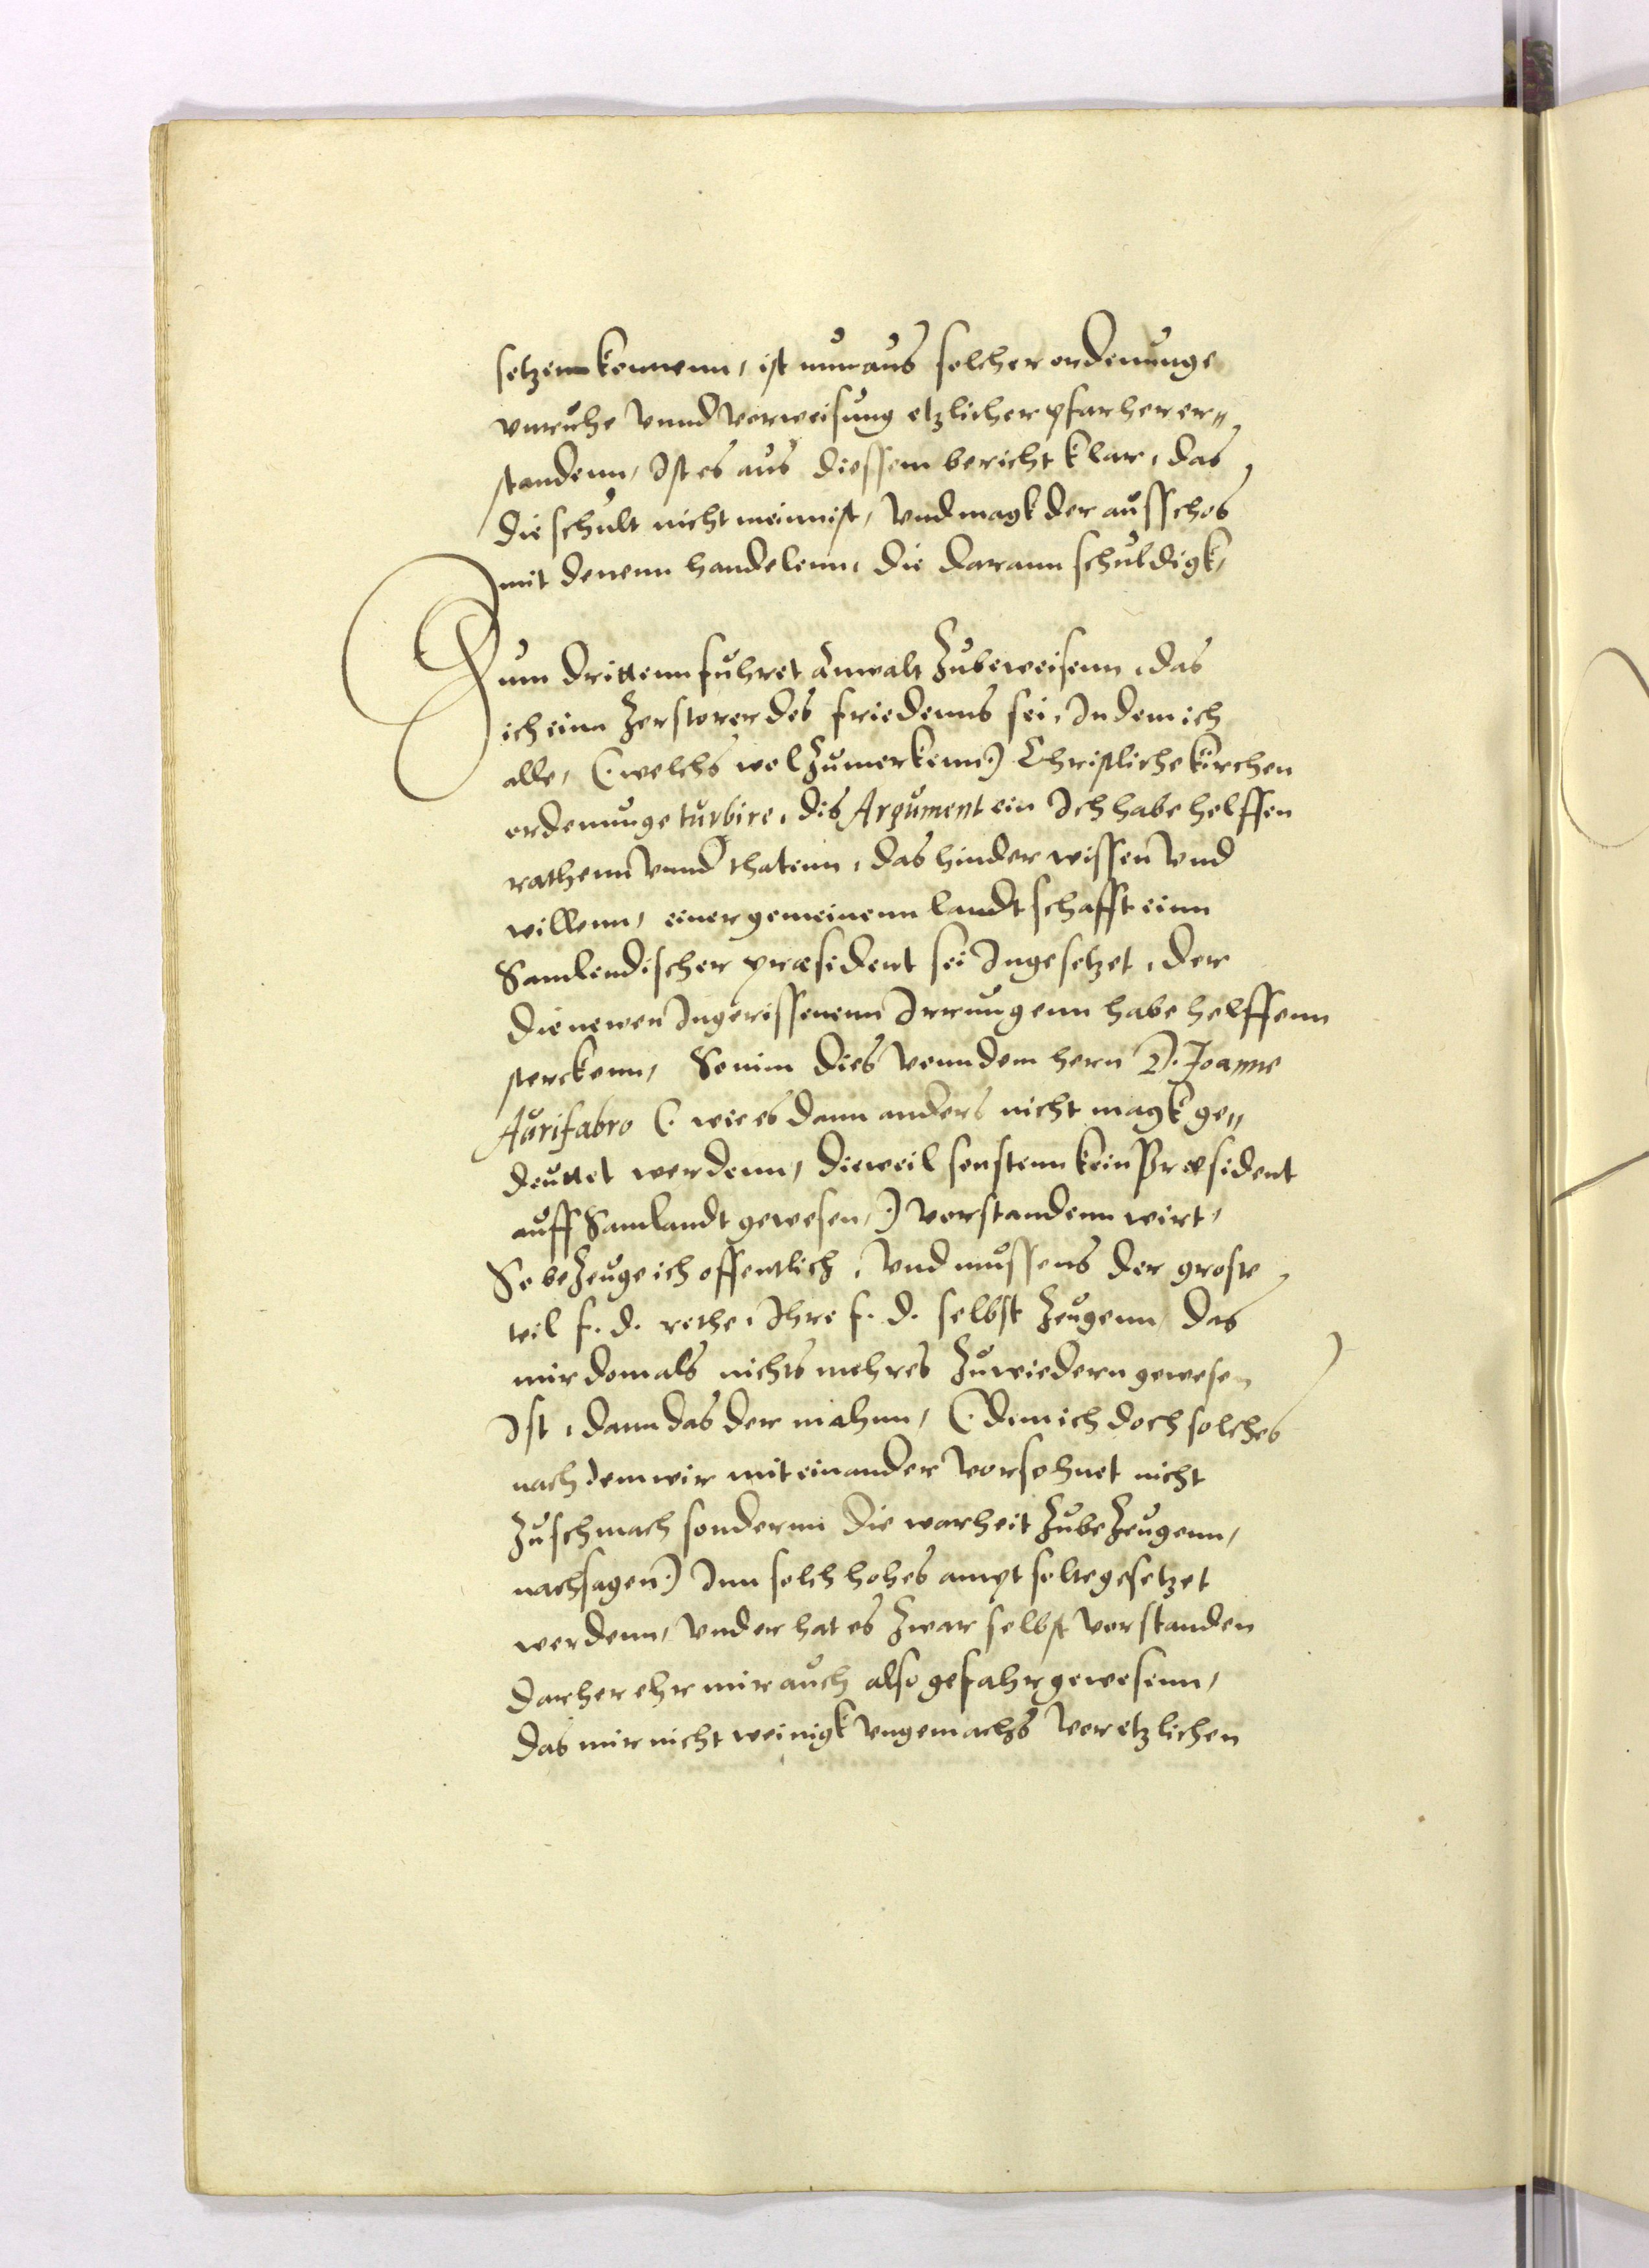 setzenn kennenn, ist nun aus solcher ordenunge
vnruhe vnnd verweisung etzlicher pfarherer er=
standenn, Ist es aus diessem bericht klar, das
die schult nicht mein ist, vnd magk der ausschos
mit denenn handelenn, die darann schuldigk,
Zum drittenn fuhret Anwalt zubeweisenn, das
ich einn zerstorer des friedenns sei, In dem ich
alle, (welchs wol zumerkenn) Christliche kirchen
ordenunge turbire, dis Argument ein Ich habe helffen
rathenn vnnd thatenn, das hinder wissen vnd
willenn, einer gemeinenn landtschafft einn
Samlendischer præsident sei Ingesetzet, der
die newen Ingerissenenn Irrungenn habe helffenn
sterckenn, So nun dies vonn dem hern D. Joanne
Aurifabro (wie es dann anders nicht magk ge=
deuttet werdenn, dieweil sonstenn kein Præsident
auff Samlandt gewesen,) verstandenn wirt,
So bezeuge ich offentlich, vnd mussens der groste
teil f. d. rethe, Ihre f. d. selbst zeugenn, das
mir domals nichts mehres zuwiedern gewesen
Ist, dann das der mahnn, (dem ich doch solches
nach dem wir mit einander vorsohnet nicht
zuschmach sondernn die warheit zubezeugenn,
nachsagen) Inn solch hohes ampt solte gesetzet
werdenn, vnd er hat es zwar selbst verstanden
Darher ehr mir auch also gefahr gewesenn,
das mir nicht weinigk vngemachs vor etzlichen